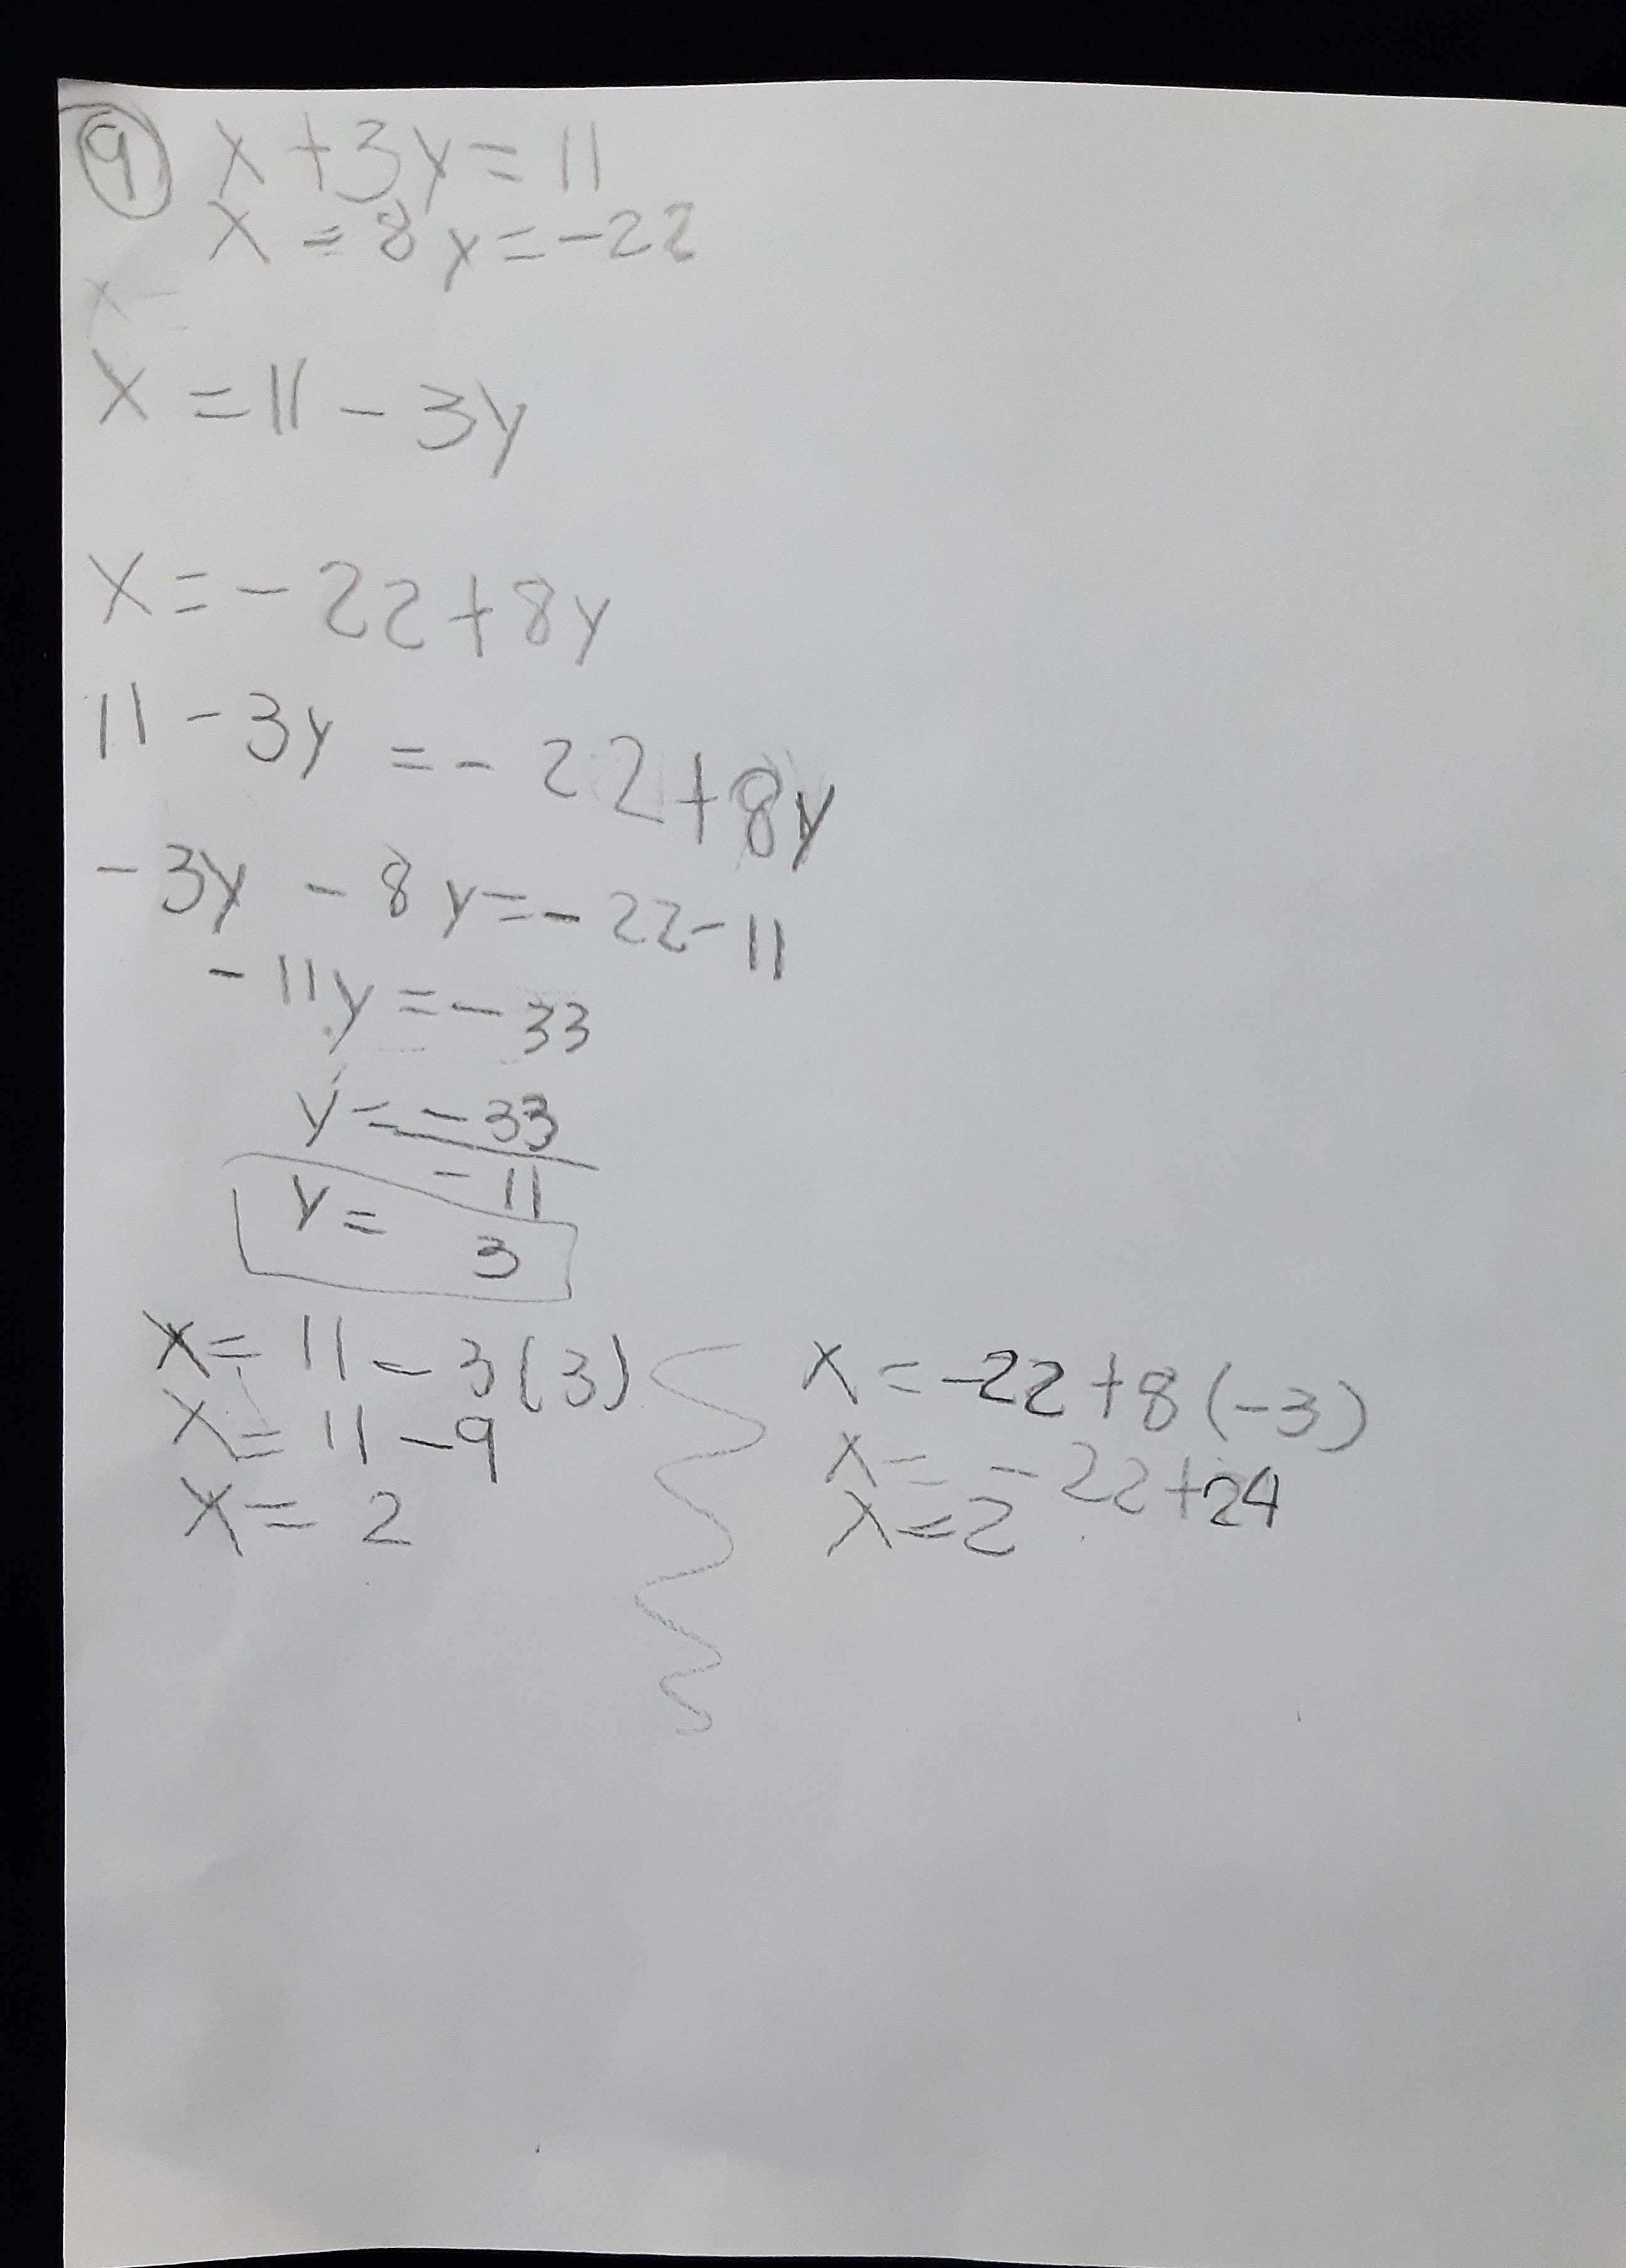 9 x + 3y = 11
x = 8y = -22
x =
x = 11 - 3y
x = -22 + 8y
11 - 3y = - 22 + 8y
- 3y - 8y = - 22 - 11
- 11y = - 33
y = - 33
- 11
y = 3
x = 11 - 3(3)
x = 11 - 9
x = 2
x = -22 + 8(-3)
x = - 22 + 24
x = 2